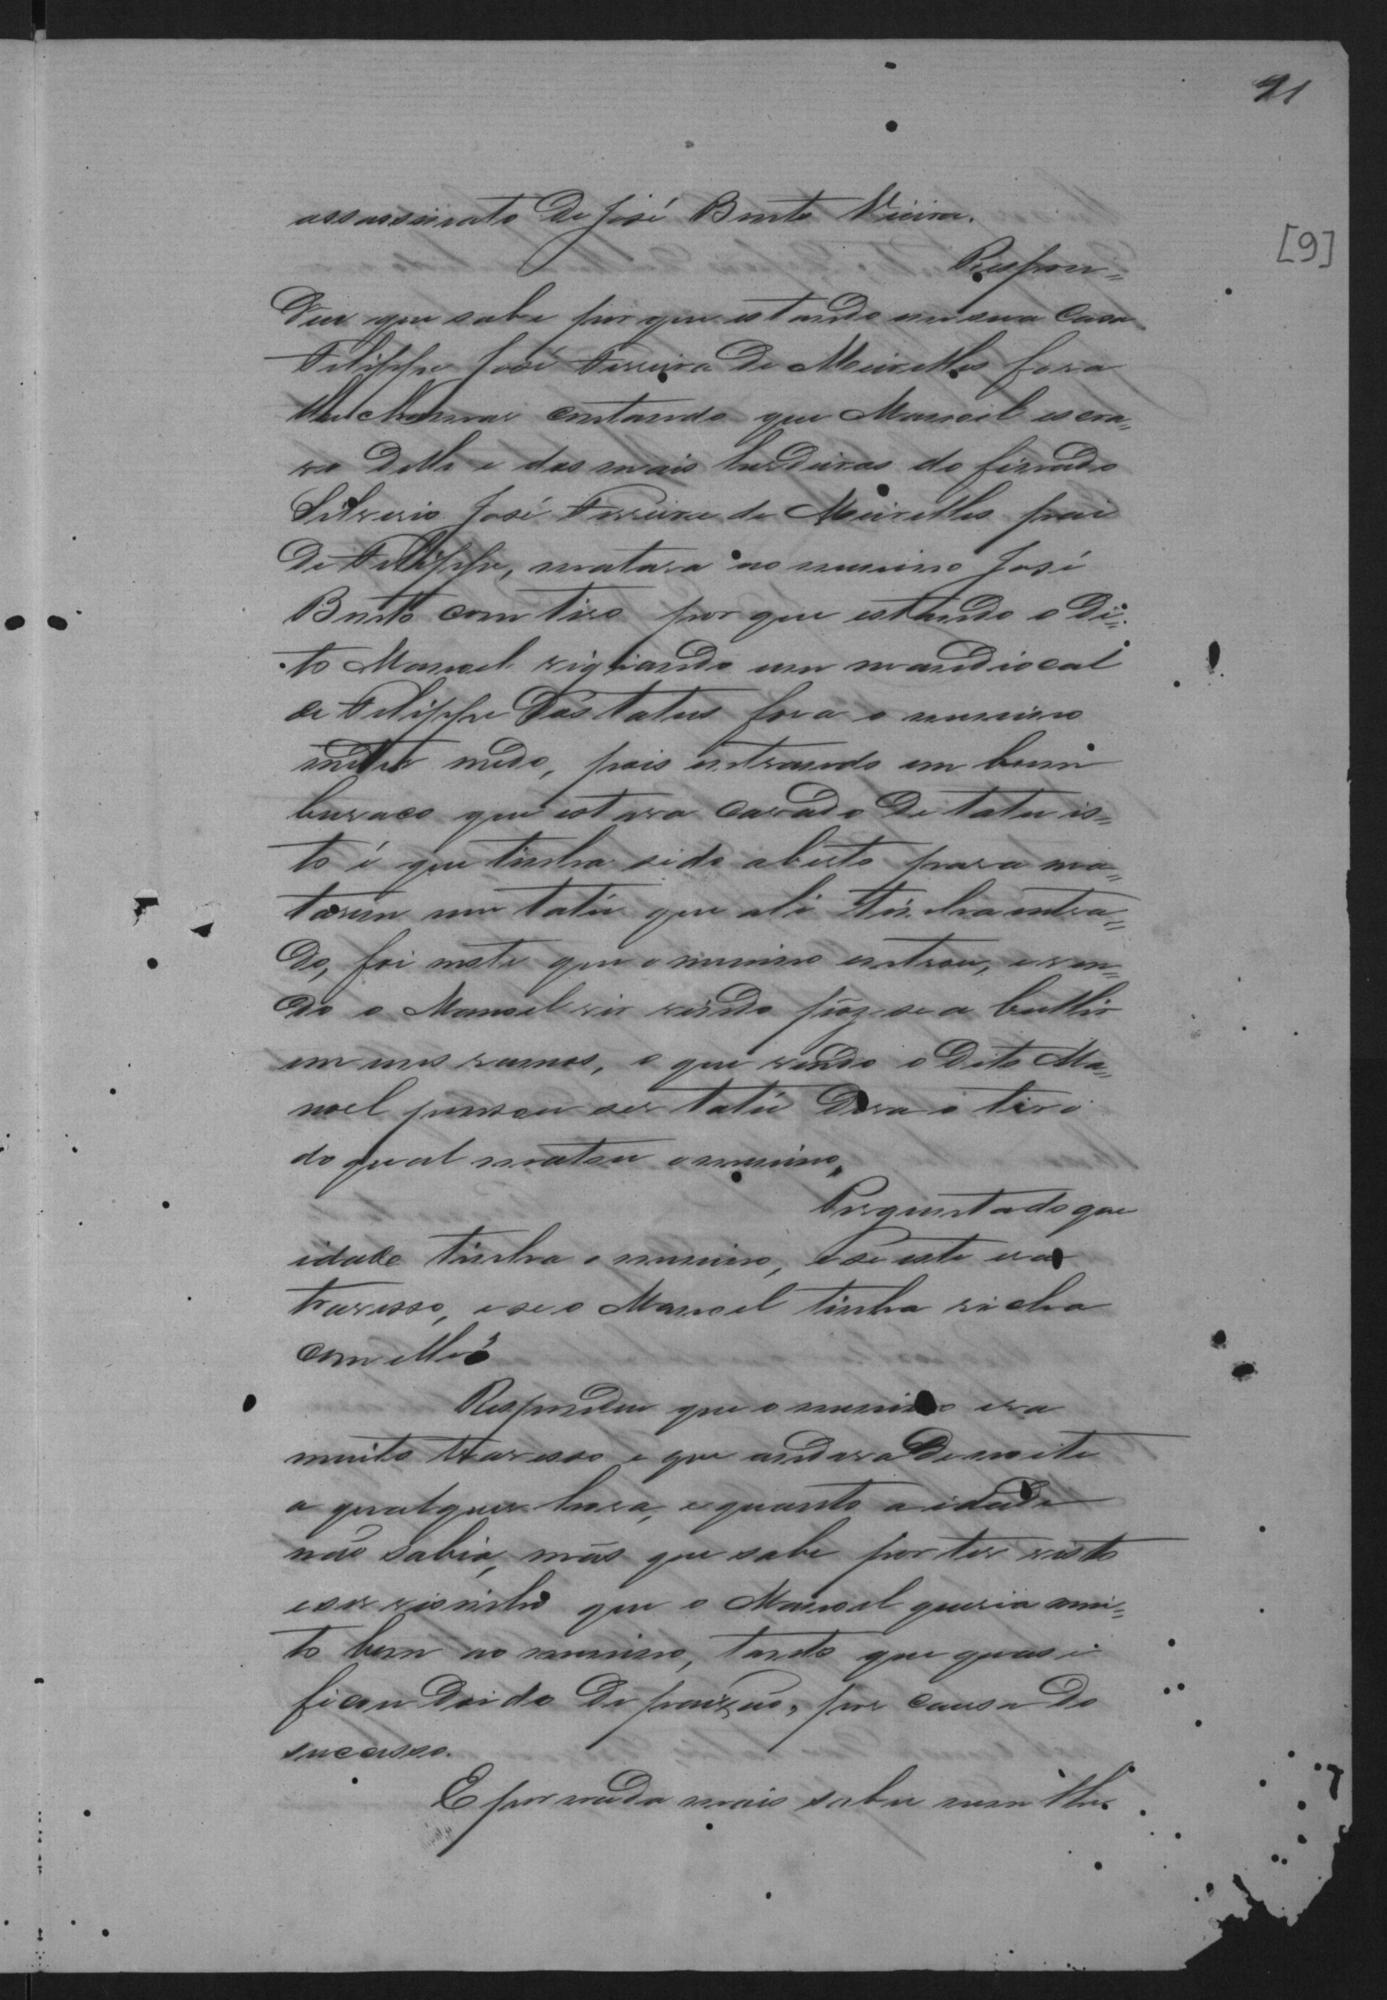 21
[9]
assassinato de José Bento Vieira.
Respon=
deu que sabe por que estando em sua casa
Felippe José Ferreira de Meirelles fora
lhe chamar contando que Manoel escra=
vo delle e dos mais herdeiros do finado
Silverio José Ferreira de Meirelles pai
de Felippe, matara ao menino José
Bento com tiro por que estando o di=
to Manoel vigiando um mandiocal
de Felippe dos tatus fora o menino
metter medo, pois entrando em hum
buraco que estava cavado de tatu is=
to é que tinha sido aberto para ma=
tarem um tatú que ali tinha entra=
do, foi neste que o menino entrou, e ven=
do o Manoel vir vindo pôz se a bullir
em uns ramos, o que vendo o dito Ma=
noel pensou ser tatú dera o tiro
do qual matou o menino.
Perguntado que
idade tinha o menino, e se este era
travesso, e se o Manoel tinha richa
com elle?
Respondeu que o menino era
muito travesso e que andava de noite
a qualquer hora, e quanto a idade
não sabia, mas que sabe por ter visto
e ser visinho que o Manoel queria mui=
to bem ao menino, tanto que quasi
ficou doido de paixão, por causa do
sucesso.
E por nada mais saber nem lhe